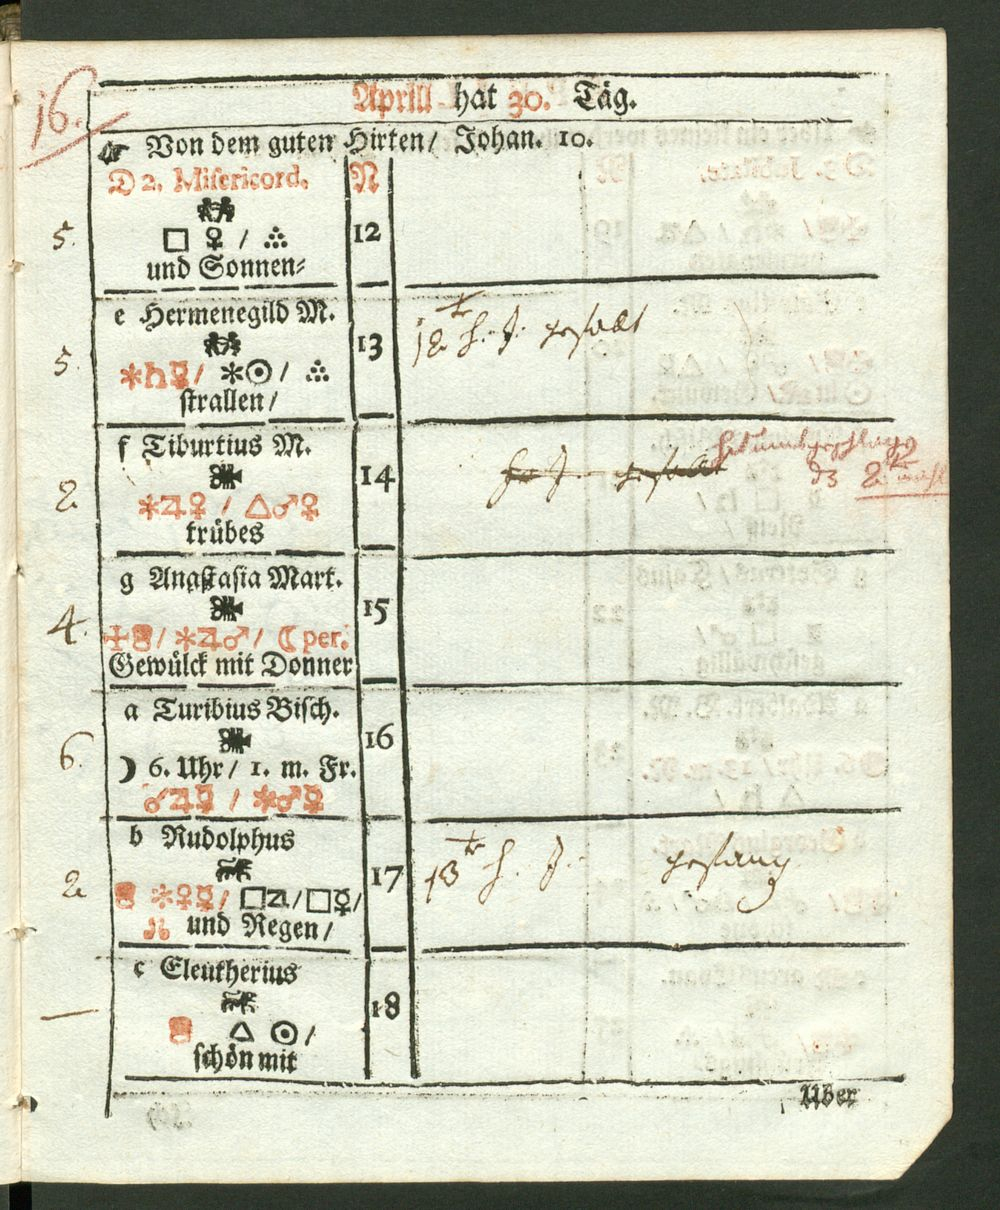 16.
Aprill hat 30. Täg.
☞ Von dem guten Hirten / Johan. 10.
D 2. Misericord. N
5. □ ♀ / ∴ 12
und Sonnen⸗
e Hermenegild M.
5. 13
✶♄☿ / ✶☉ / ∴
strallen /
f Tiburtius M.
2. 14
✶♃♀ / △♂♀
trübes
g Anastasia Mart.
4. 15
/ ✶♃♂ / ☾ per.
Gewülck mit Donner
a Turibius Bisch.
6. 16
☽ 6. Uhr / 1. m. Fr.
☌♃☿ / ✶♂☿
b Rudolphus
2. 17
✶♀☿ / □♃ / □☿ /
und Regen /
c Eleutherius
18
△ ☉ /
schön mit
Uber